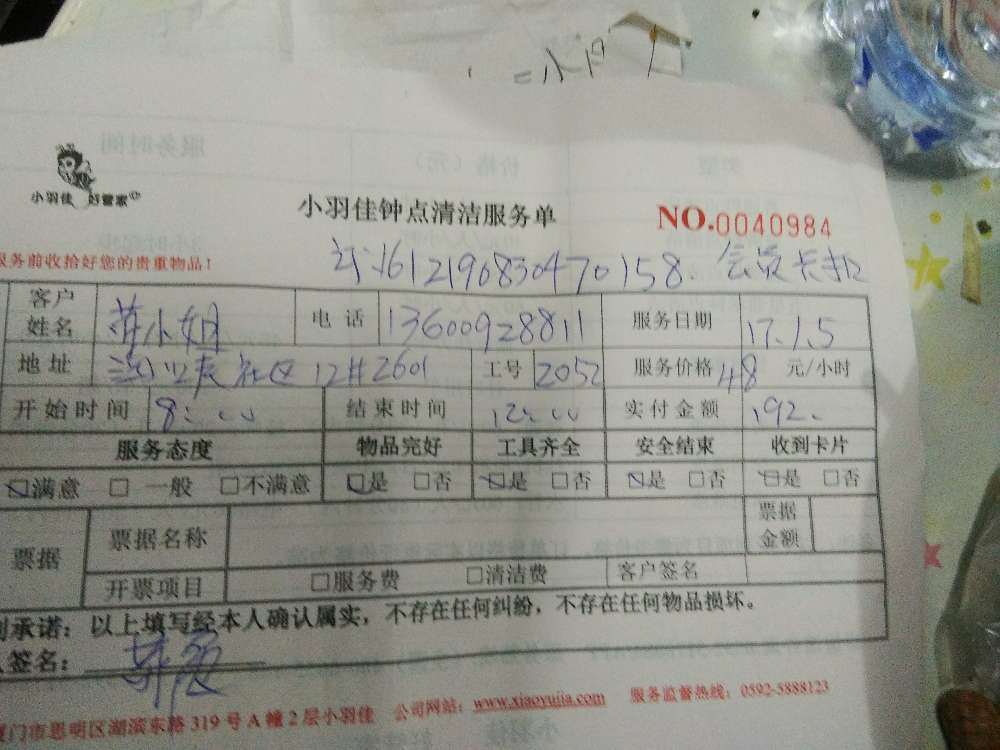 小羽佳 好管家
小羽佳钟点清洁服务单 NO.0040984
服务前收拾好您的贵重物品!
161219083047 0158. 会员卡扣
客户姓名 小姐 电话 13600928811 服务日期 17.1.5
地址 社区12#2601 工号 2052 服务价格 48 元/小时
开始时间 8:00 结束时间 12:00 实付金额 192.
服务态度 物品完好 工具齐全 安全结束 收到卡片
☑满意 □ 一般 □不满意 ☑是 □否 ☑是 □否 ☑是 □否 ☑是 □否
票据 票据名称 票据金额
开票项目 □服务费 □清洁费 客户签名
承诺:以上填写经本人确认属实,不存在任何纠纷,不存在任何物品损坏。
签名:
厦门市思明区湖滨东路 319 号 A 幢 2 层小羽佳 公司网站:www.xiaoyujia.com 服务监督热线:0592-5888123